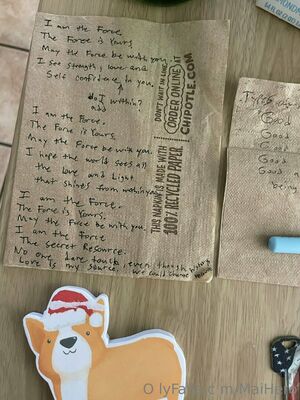 I am the Force.
The Force is Yours
May the Force be with you.
I see strength, love and
self confidence in you.
do I within?
add
I am the Force.
The Force is Yours.
May the Force be with you.
I hope the world sees all
the love and light
that shines from within you.
I am the Force.
The Force is Yours.
May the Force be with you
I am the Force
The Secret Resource.
No one dare touch, even though history
Love is my source. we could change
DON'T WAIT IN LINE
ORDER ONLINE AT
CHIPOTLE.COM
THIS NAPKIN IS MADE WITH
100% RECYCLED PAPER
Good
Good
Good
Good
being